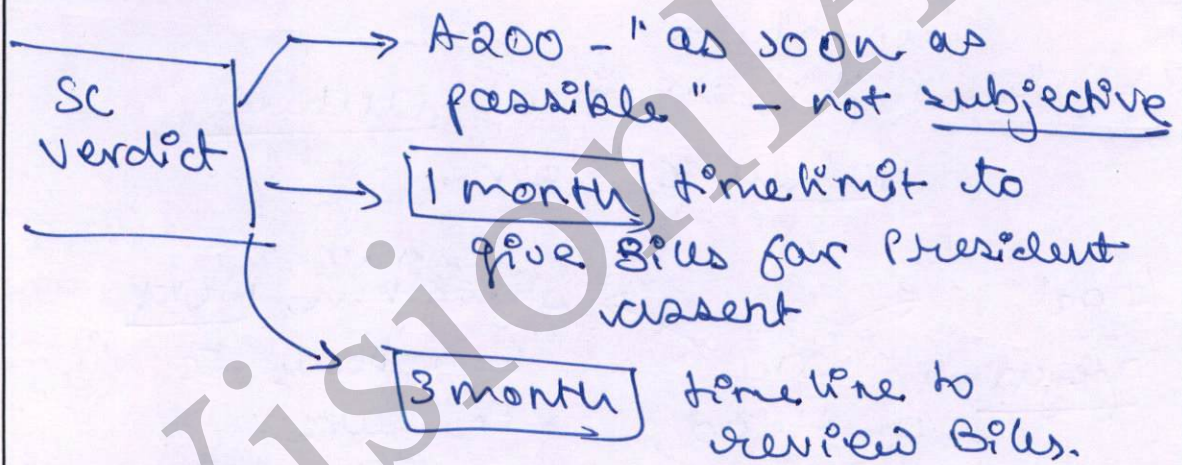 SC
verdict
A200 - "as soon as
possible" - not subjective
1 month timelimit to
give Bills for President
assent
3 month timeline to
review Bills.
VisionIA